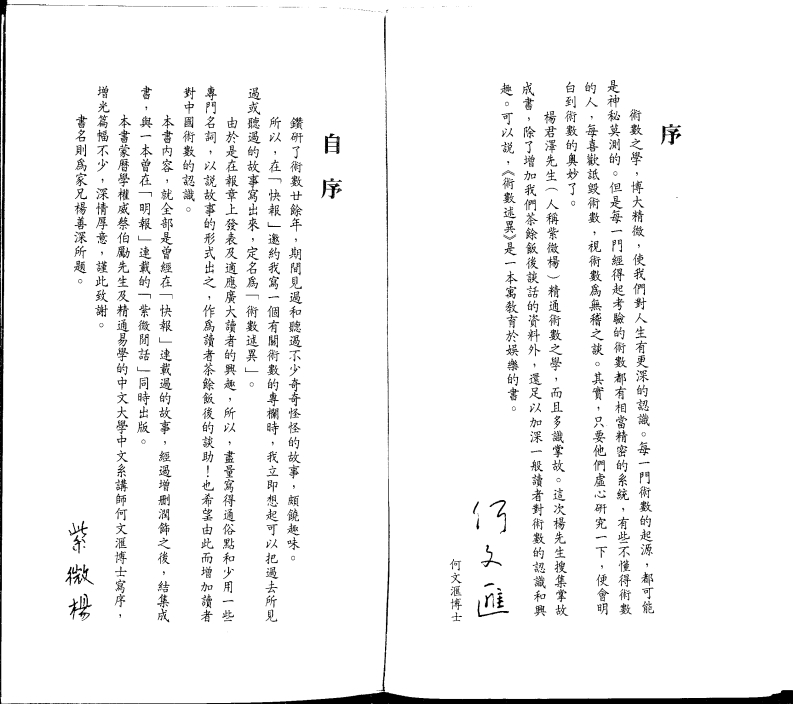 序
術數之學，博大精微，使我們對人生有更深的認識。每一門術數的起源，都可能
是神秘莫測的。但是每一門經得起考驗的術數都有相當精密的系統，有些不懂得術數
的人，每喜歡詆毀術數，視術數爲無稽之談。其實，只要他們虛心研究一下，便會明
白到術數的奧妙了。
楊君澤先生（人稱紫微楊）精通術數之學，而且多識掌故。這次楊先生搜集掌故
成書，除了增加我們茶餘飯後談話的資料外，還足以加深一般讀者對術數的認識和興
趣。可以說，《術數述異》是一本寓敎育於娛樂的書。
何文滙
何文滙博士
自序
鑽研了術數廿餘年，期間見過和聽過不少奇奇怪怪的故事，頗饒趣味。
所以，在「快報」邀約我寫一個有關術數的專欄時，我立即想起可以把過去所見
過或聽過的故事寫出來，定名爲「術數述異」。
由於是在報章上發表及適應廣大讀者的興趣，所以，盡量寫得通俗點和少用一些
專門名詞，以說故事的形式出之，作爲讀者茶餘飯後的談助！也希望由此而增加讀者
對中國術數的認識。
本書內容，就全部是曾經在「快報」連載過的故事，經過增刪潤飾之後，結集成
書，與一本曾在「明報」連載的「紫微閒話」同時出版。
本書蒙曆學權威蔡伯勵先生及精通易學的中文大學中文系講師何文滙博士寫序，
增光篇幅不少，深情厚意，謹此致謝。
書名則爲家兄楊善深所題。
紫微楊